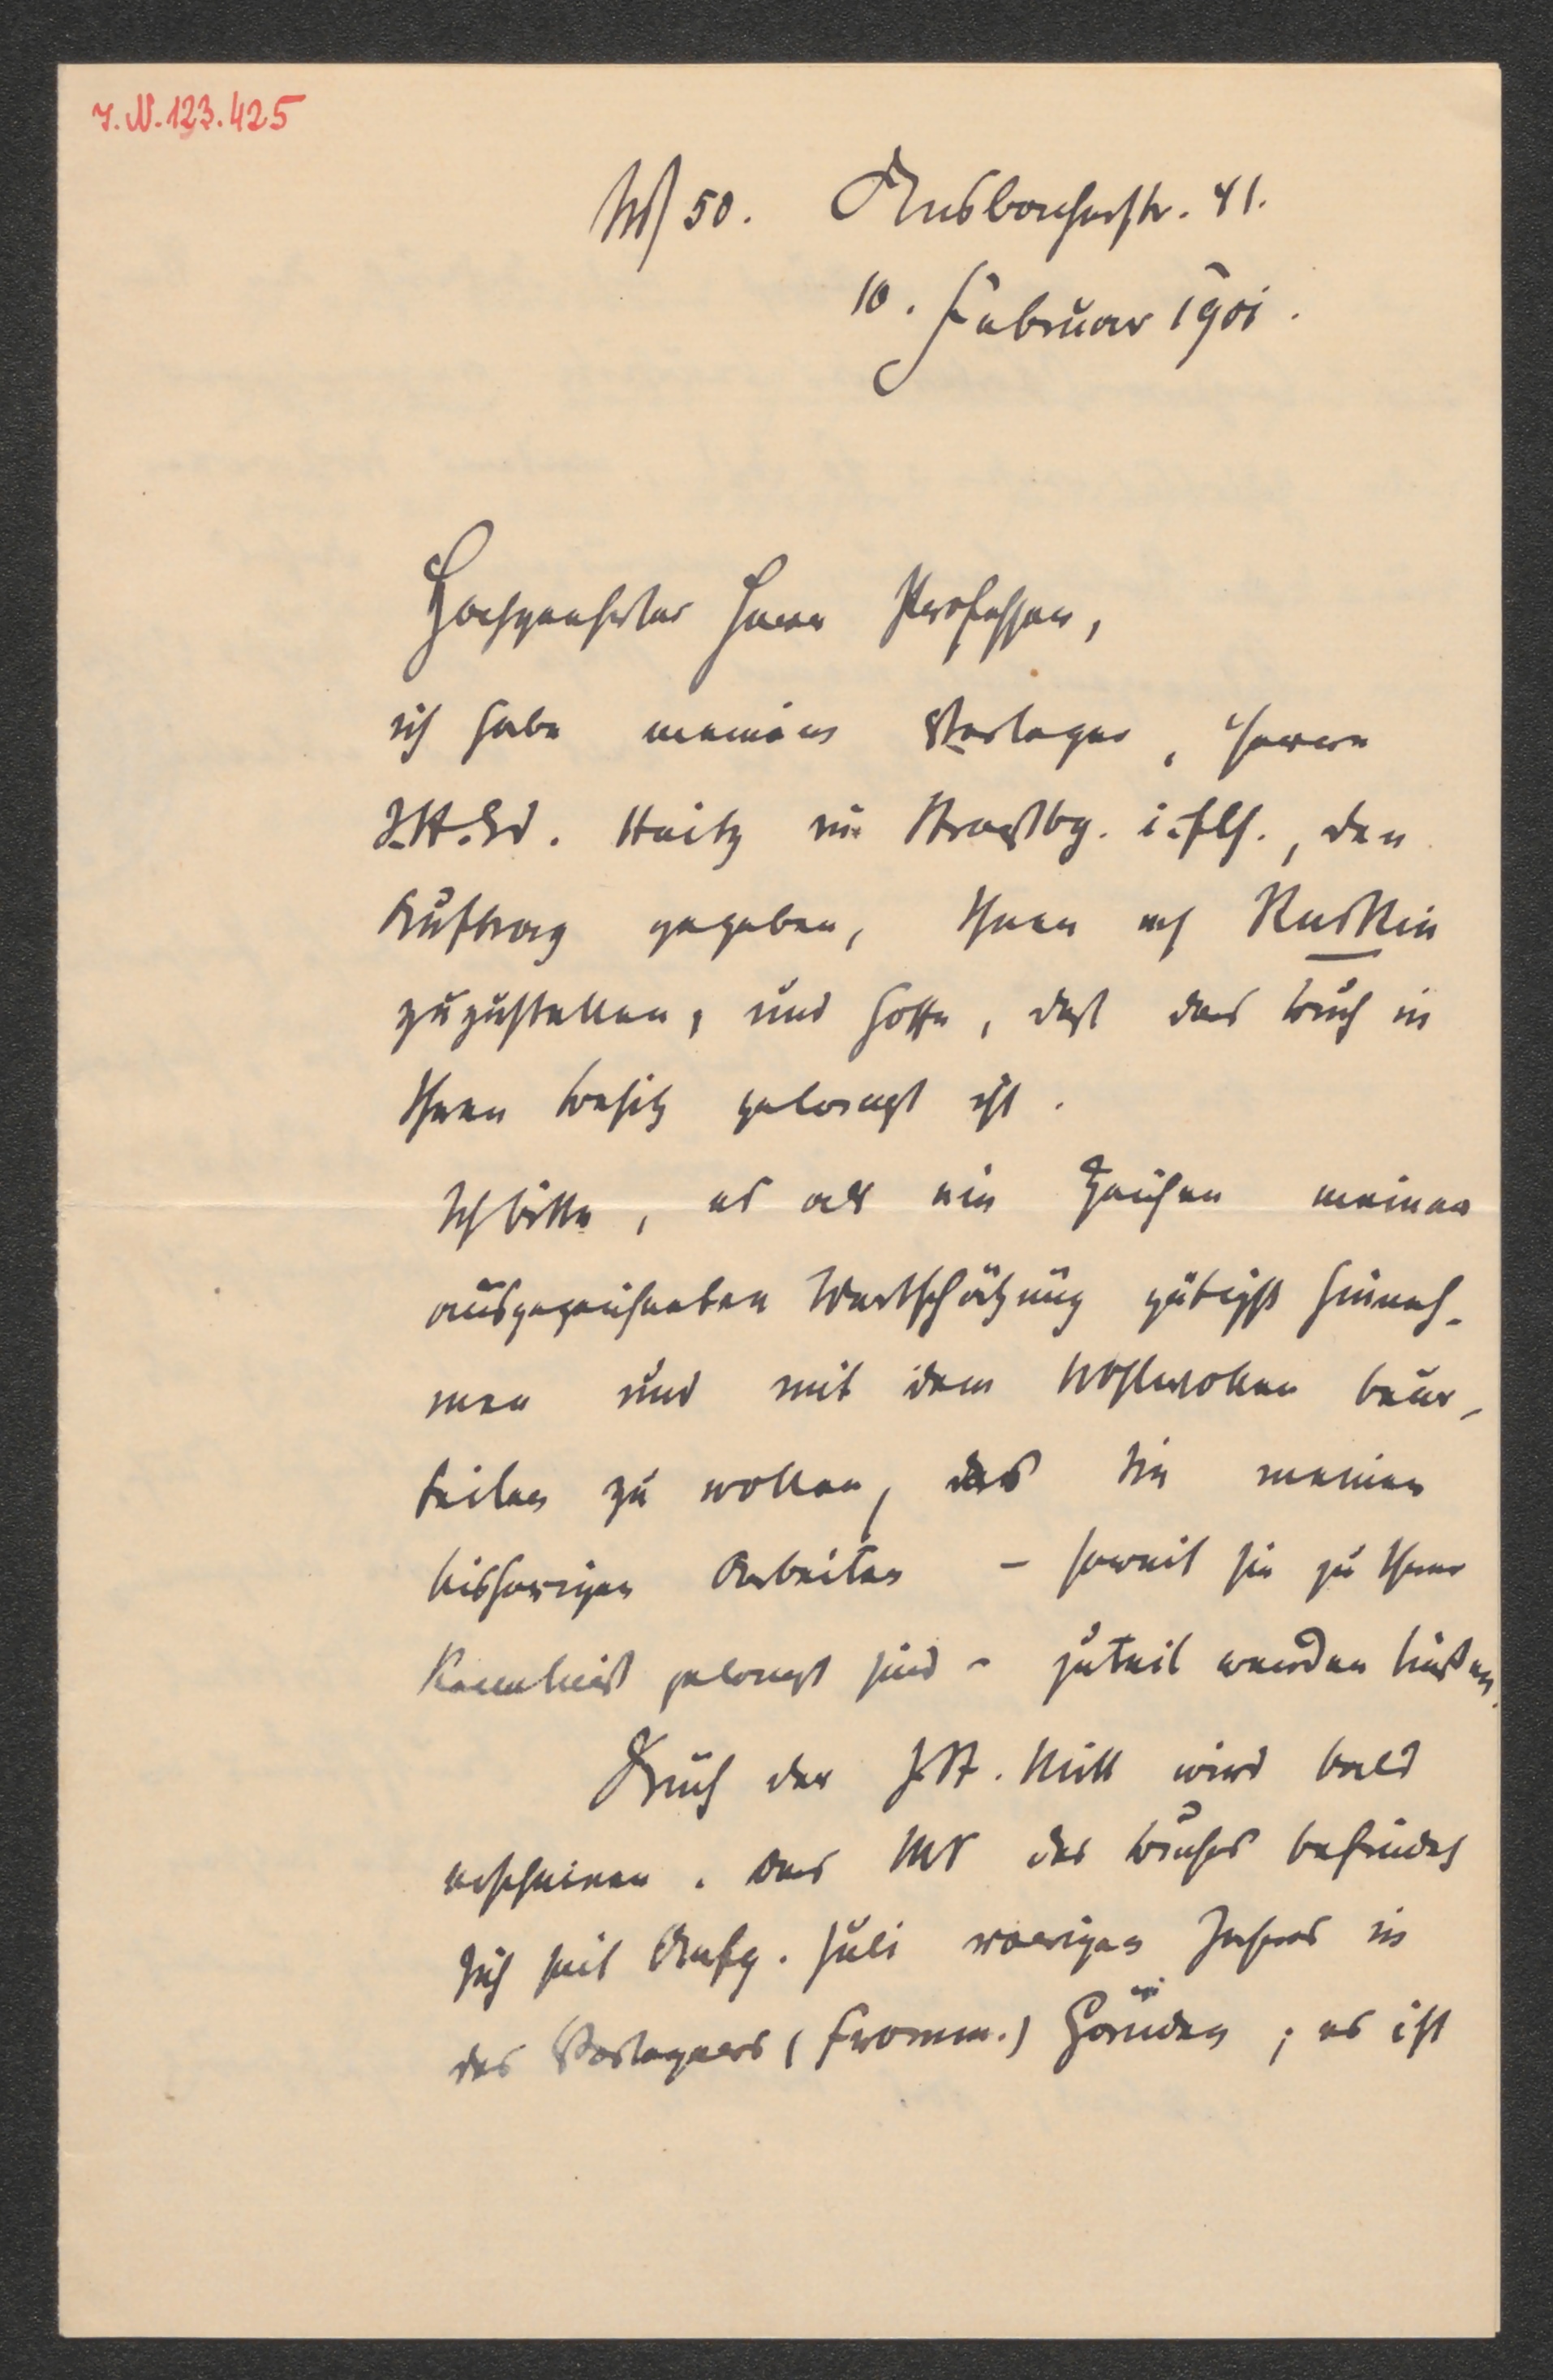 I. N. 123.425
W 50. Ansbacherstr. 41.
10. Februar 1901.
Hochgeehrter Herr Professor,
ich habe meinem Verleger, Herrn
J. H. Ed. Heitz in Straßbg. i. Els., den
Auftrag gegeben, Ihnen m Ruskin
zuzustellen, und hoffe, daß das Buch in
Ihren Besitz gelangt ist.
Ich bitte, es als ein Zeichen meiner
ausgezeichneten Wertschätzung gütigst hinneh-
men und mit dem Wohlwollen beur-
teilen zu wollen, das Sie meinen
bisherigen Arbeiten – soweit sie zu Ihrer
Kenntniß gelangt sind – zuteil werden ließen.
Auch der J. St. Mill wird bald
erscheinen. Das MS des Buches befindet
sich seit Anfg. Juli vorigen Jahres in
des Verlegers (Fromm.) Händen; es ist